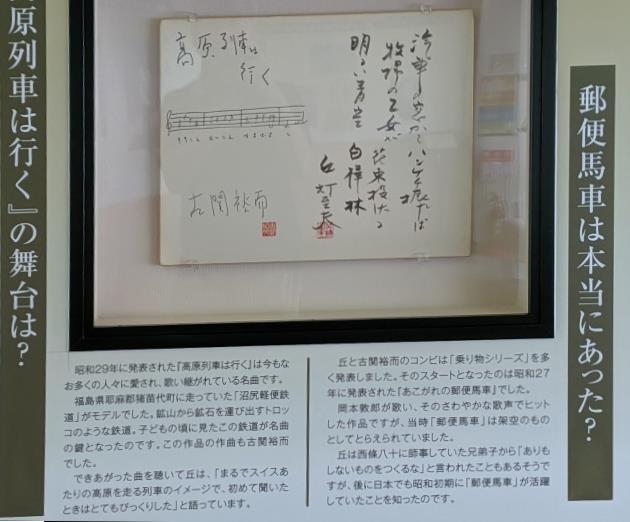 原列車は行く』の舞台は?
高原列車は
行く
古関裕而
汽車の窓からハンケチ振れば
牧場の乙女が花束投げる
明るい青空 白樺林
丘灯至夫
昭和29年に発表された『高原列車は行く』は今もな
お多くの人々に愛され、歌い継がれている名曲です。
福島県耶麻郡猪苗代町に走っていた「沼尻軽便鉄
道」がモデルでした。鉱山から鉱石を運び出すトロッ
コのような鉄道。子どもの頃に見たこの鉄道が名曲
の鍵となったのです。この作品の作曲も古関裕而
でした。
できあがった曲を聴いて丘は、「まるでスイスあ
たりの高原を走る列車のイメージで、初めて聞いた
ときはとてもびっくりした」と語っています。
丘と古関裕而のコンビは「乗り物シリーズ」を多
く発表しました。そのスタートとなったのは昭和27
年に発表された「あこがれの郵便馬車」でした。
岡本敦郎が歌い、そのさわやかな歌声でヒット
した作品ですが、当時「郵便馬車」は架空のもの
としてとらえられていました。
丘は西條八十に師事していた兄弟子から「ありも
しないものをつくるな」と言われたこともあるそうで
すが、後に日本でも昭和初期に「郵便馬車」が活躍
していたことを知ったのです。
郵便馬車は本当にあった?